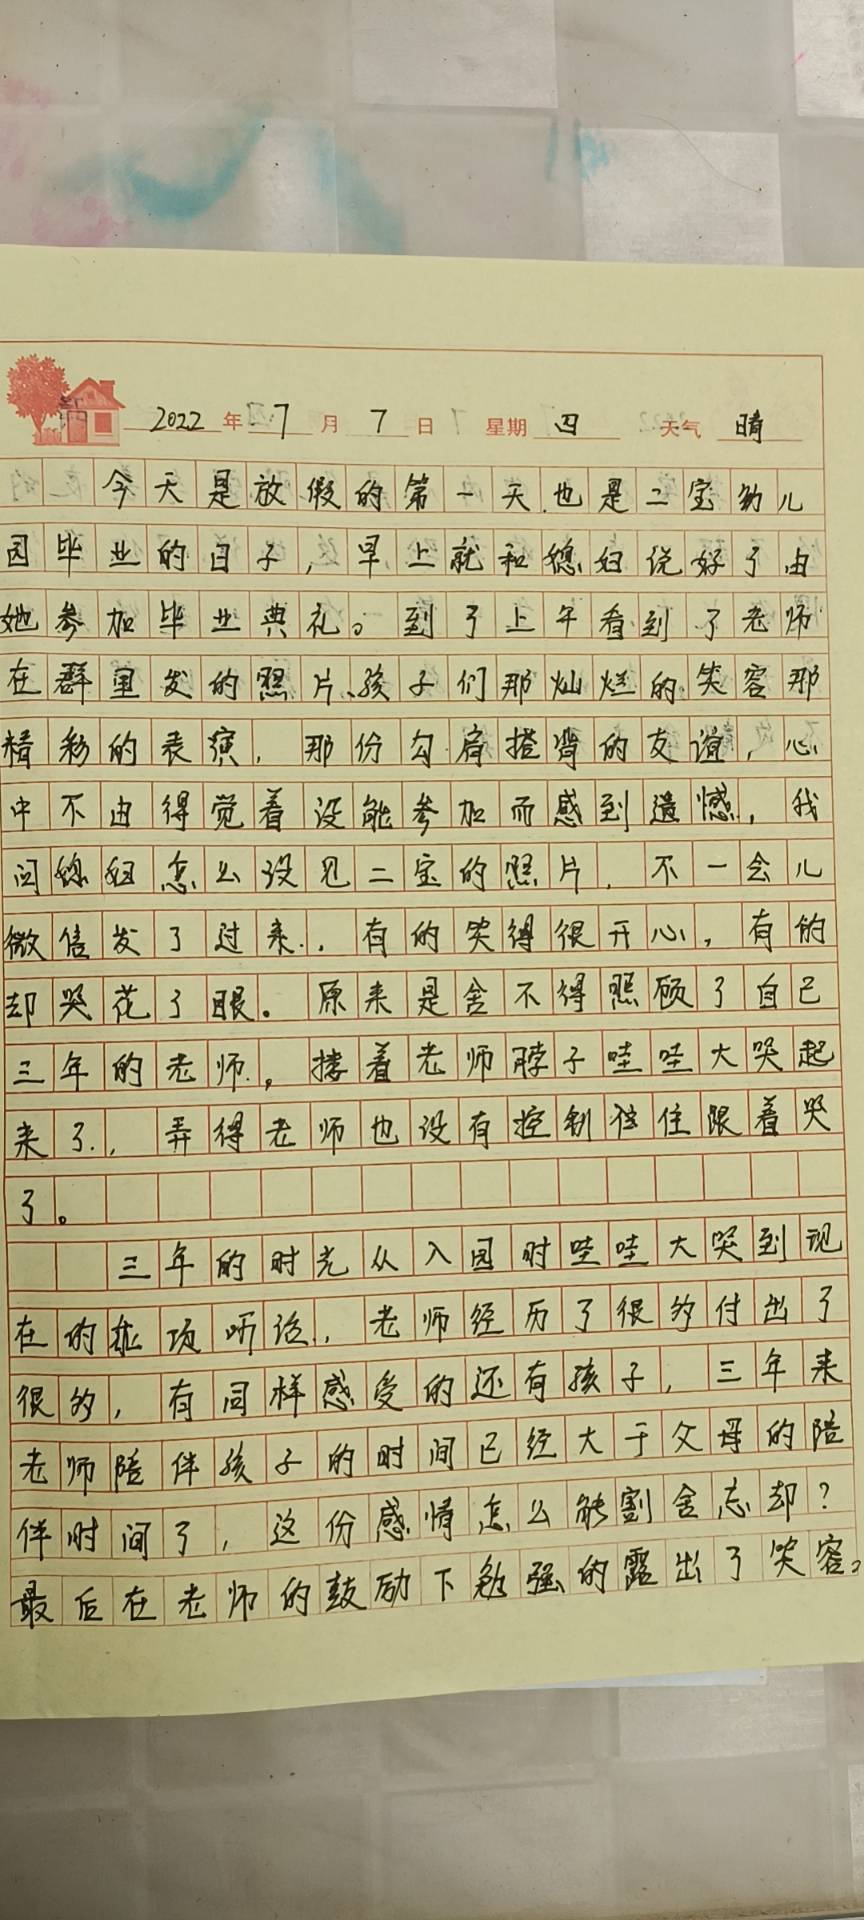 2022年7月7日 星期四 天气 晴
今天是放假的第一天也是二宝幼儿
园毕业的日子，早上就和媳妇说好了由
她参加毕业典礼。到了上午看到了老师
在群里发的照片、孩子们那灿烂的笑容那
精彩的表演，那份勾肩搭背的友谊，心
中不由得觉着没能参加而感到遗憾，我
问媳妇怎么没见二宝的照片，不一会儿
微信发了过来，有的笑得很开心，有的
却哭花了眼。原来是舍不得照顾了自己
三年的老师，搂着老师脖子哇哇大哭起
来了，弄得老师也没有控制住跟着哭
了。
三年的时光从入园时哇哇大哭到现
在的听话，老师经历了很多付出了
很多，有同样感受的还有孩子，三年来
老师陪伴孩子的时间已经大于父母的陪
伴时间了，这份感情怎么能割舍忘却？
最后在老师的鼓励下勉强的露出了笑容。